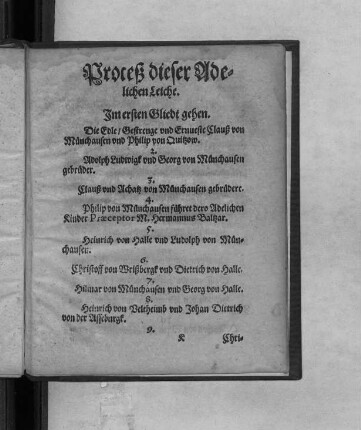 Proceß dieser Ade-
lichen Leiche.
Im ersten Gliedt gehen.
Die Edle/ Gestrenge vnd Ernueste Clauß von
Münchausen vnd Philip von Quitzow.
2.
Adolph Ludwigk vnd Georg von Münchausen
gebrüder.
3.
Clauß vnd Achatz von Münchausen gebrüdere.
4.
Philip von Münchausen führet dero Adelichen
Kinder Præceptor M. Hermannus Baltzar.
5.
Heinrich von Halle vnd Ludolph von Mün-
chausen.
6.
Christoff von Weißbergk vnd Dietrich von Halle.
7.
Hilmar von Münchausen vnd Georg von Halle.
8.
Heinrich von Veltheimb vnd Johan Dietrich
von der Asseburgk.
9.
K Chri-